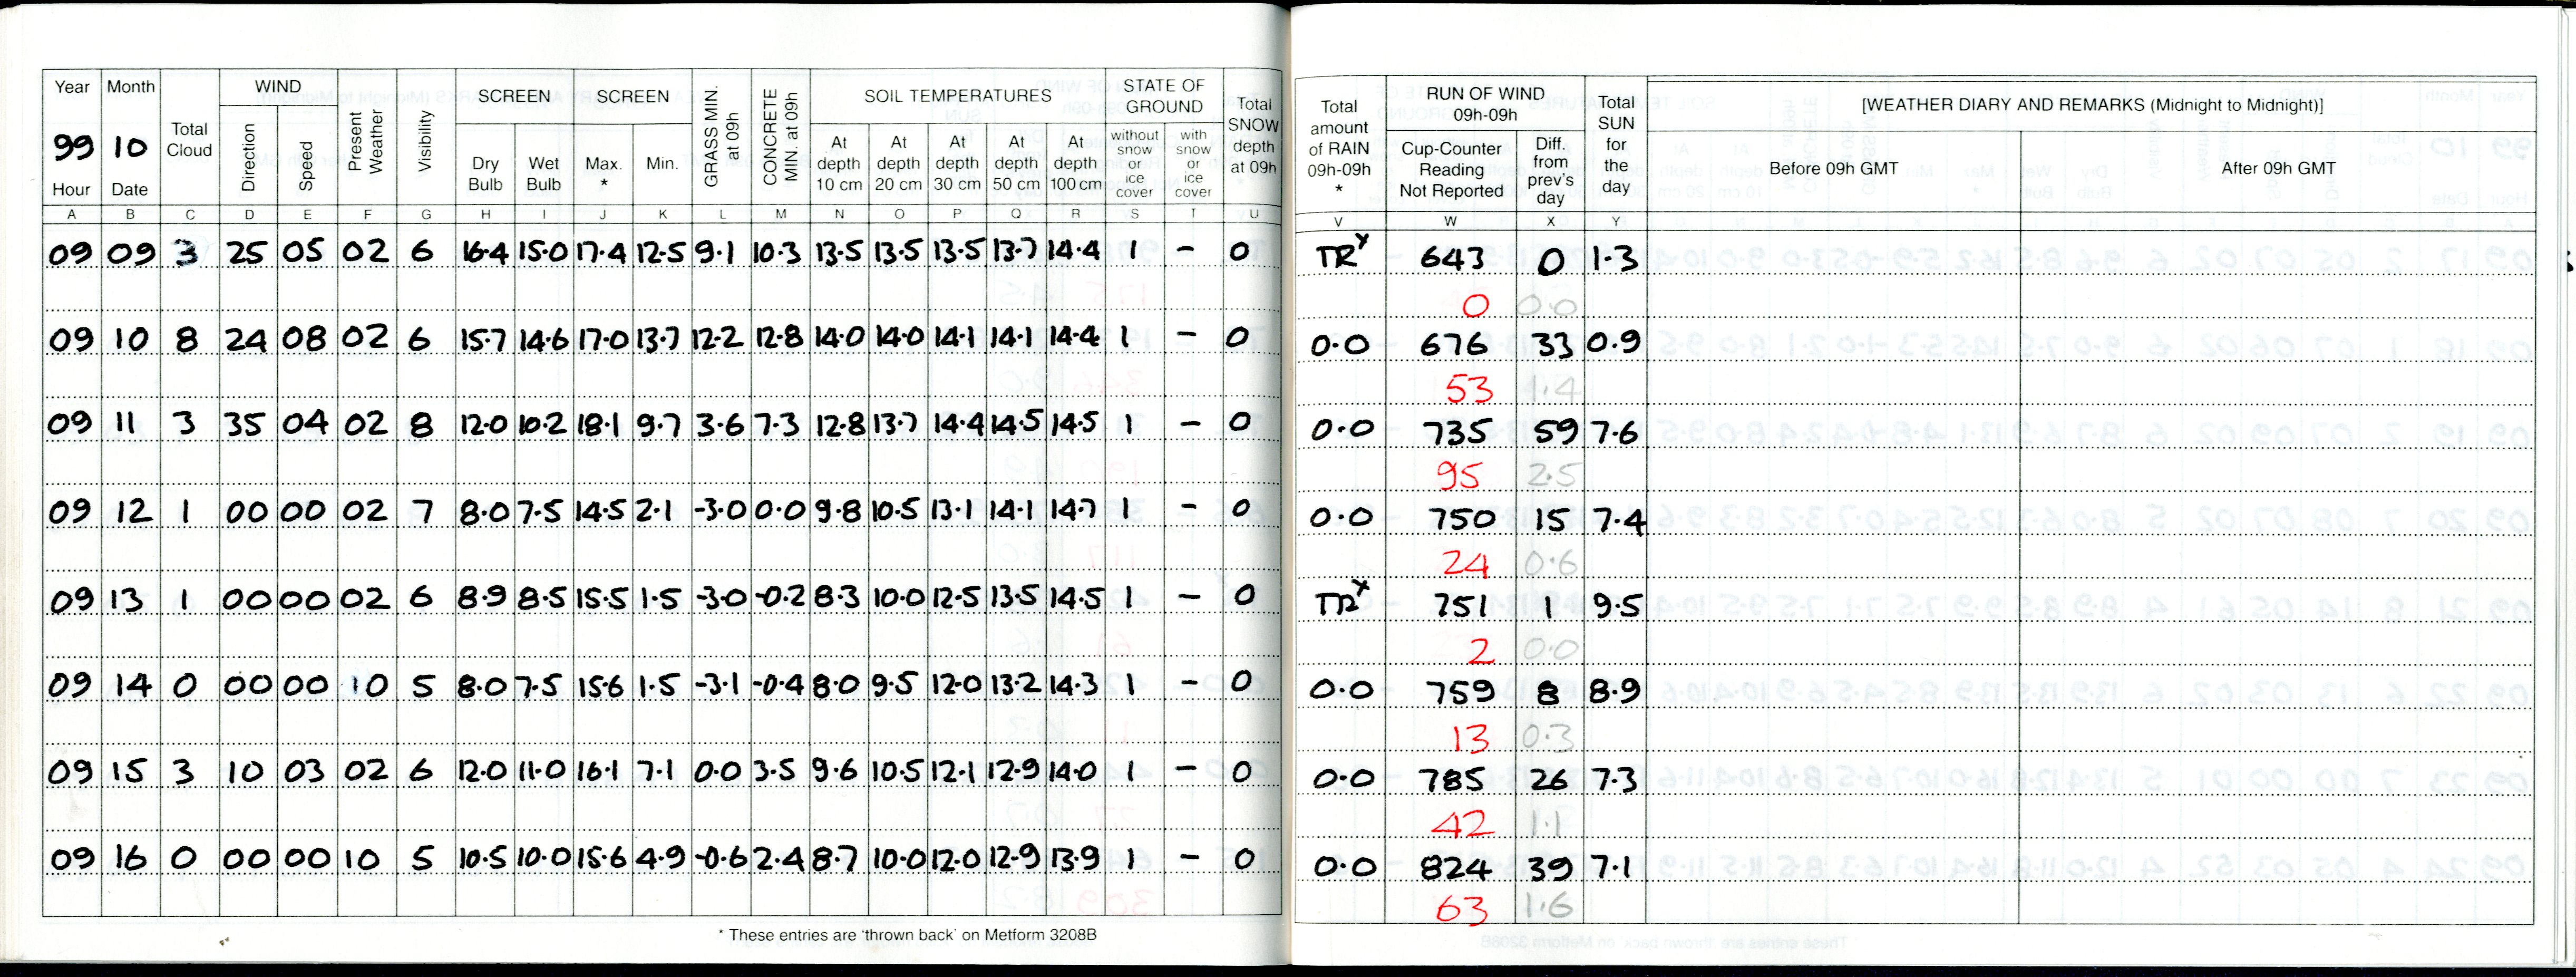 Year Month Total Cloud WIND Present Weather Visibility SCREEN SCREEN GRASS MIN. at 09h CONCRETE MIN. at 09h SOIL TEMPERATURES STATE OF GROUND Total SNOW depth at 09h
99 10 Direction Speed Dry Bulb Wet Bulb Max. * Min. At depth 10 cm At depth 20 cm At depth 30 cm At depth 50 cm At depth 100 cm without snow or ice cover with snow or ice cover
Hour Date
Total amount of RAIN 09h-09h * RUN OF WIND 09h-09h Total SUN for the day [WEATHER DIARY AND REMARKS (Midnight to Midnight)]
Cup-Counter Reading Not Reported Diff. from prev's day Before 09h GMT After 09h GMT
A B C D E F G H I J K L M N O P Q R S T U V W X Y
09 09 3 25 05 02 6 16.4 15.0 17.4 12.5 9.1 10.3 13.5 13.5 13.5 13.7 14.4 1 - 0 TRx 643 0 1.3
0 0.0
09 10 8 24 08 02 6 15.7 14.6 17.0 13.7 12.2 12.8 14.0 14.0 14.1 14.1 14.4 1 - 0 0.0 676 33 0.9
53 1.4
09 11 3 35 04 02 8 12.0 10.2 18.1 9.7 3.6 7.3 12.8 13.7 14.4 14.5 14.5 1 - 0 0.0 735 59 7.6
95 2.5
09 12 1 00 00 02 7 8.0 7.5 14.5 2.1 -3.0 0.0 9.8 10.5 13.1 14.1 14.7 1 - 0 0.0 750 15 7.4
24 0.6
09 13 1 00 00 02 6 8.9 8.5 15.5 1.5 -3.0 -0.2 8.3 10.0 12.5 13.5 14.5 1 - 0 TRx 751 1 9.5
2 0.0
09 14 0 00 00 10 5 8.0 7.5 15.6 1.5 -3.1 -0.4 8.0 9.5 12.0 13.2 14.3 1 - 0 0.0 759 8 8.9
13 0.3
09 15 3 10 03 02 6 12.0 11.0 16.1 7.1 0.0 3.5 9.6 10.5 12.1 12.9 14.0 1 - 0 0.0 785 26 7.3
42 1.1
09 16 0 00 00 10 5 10.5 10.0 15.6 4.9 -0.6 2.4 8.7 10.0 12.0 12.9 13.9 1 - 0 0.0 824 39 7.1
63 1.6
* These entries are 'thrown back' on Metform 3208B